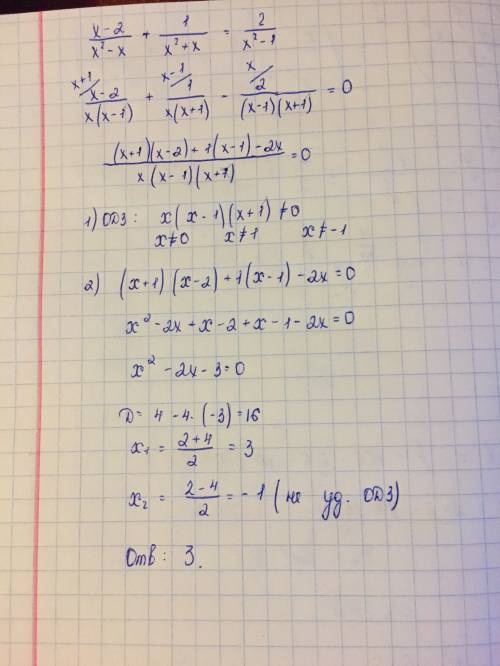 x-2/x²-x + 1/x²+x = 2/x²-1
x+1/ x-2/x(x-1) + x-1/ 1/x(x+1) - x/ 2/(x-1)(x+1) = 0
(x+1)(x-2)+1(x-1)-2x/x(x-1)(x+1) = 0
1) ОДЗ: x(x-1)(x+1)≠0
x≠0 x≠1 x≠-1
2) (x+1)(x-2)+1(x-1)-2x=0
x²-2x+x-2+x-1-2x=0
x²-2x-3=0
D= 4-4·(-3)=16
x₁ = 2+4/2 = 3
x₂ = 2-4/2 = -1 (не уд. ОДЗ)
Отв: 3.